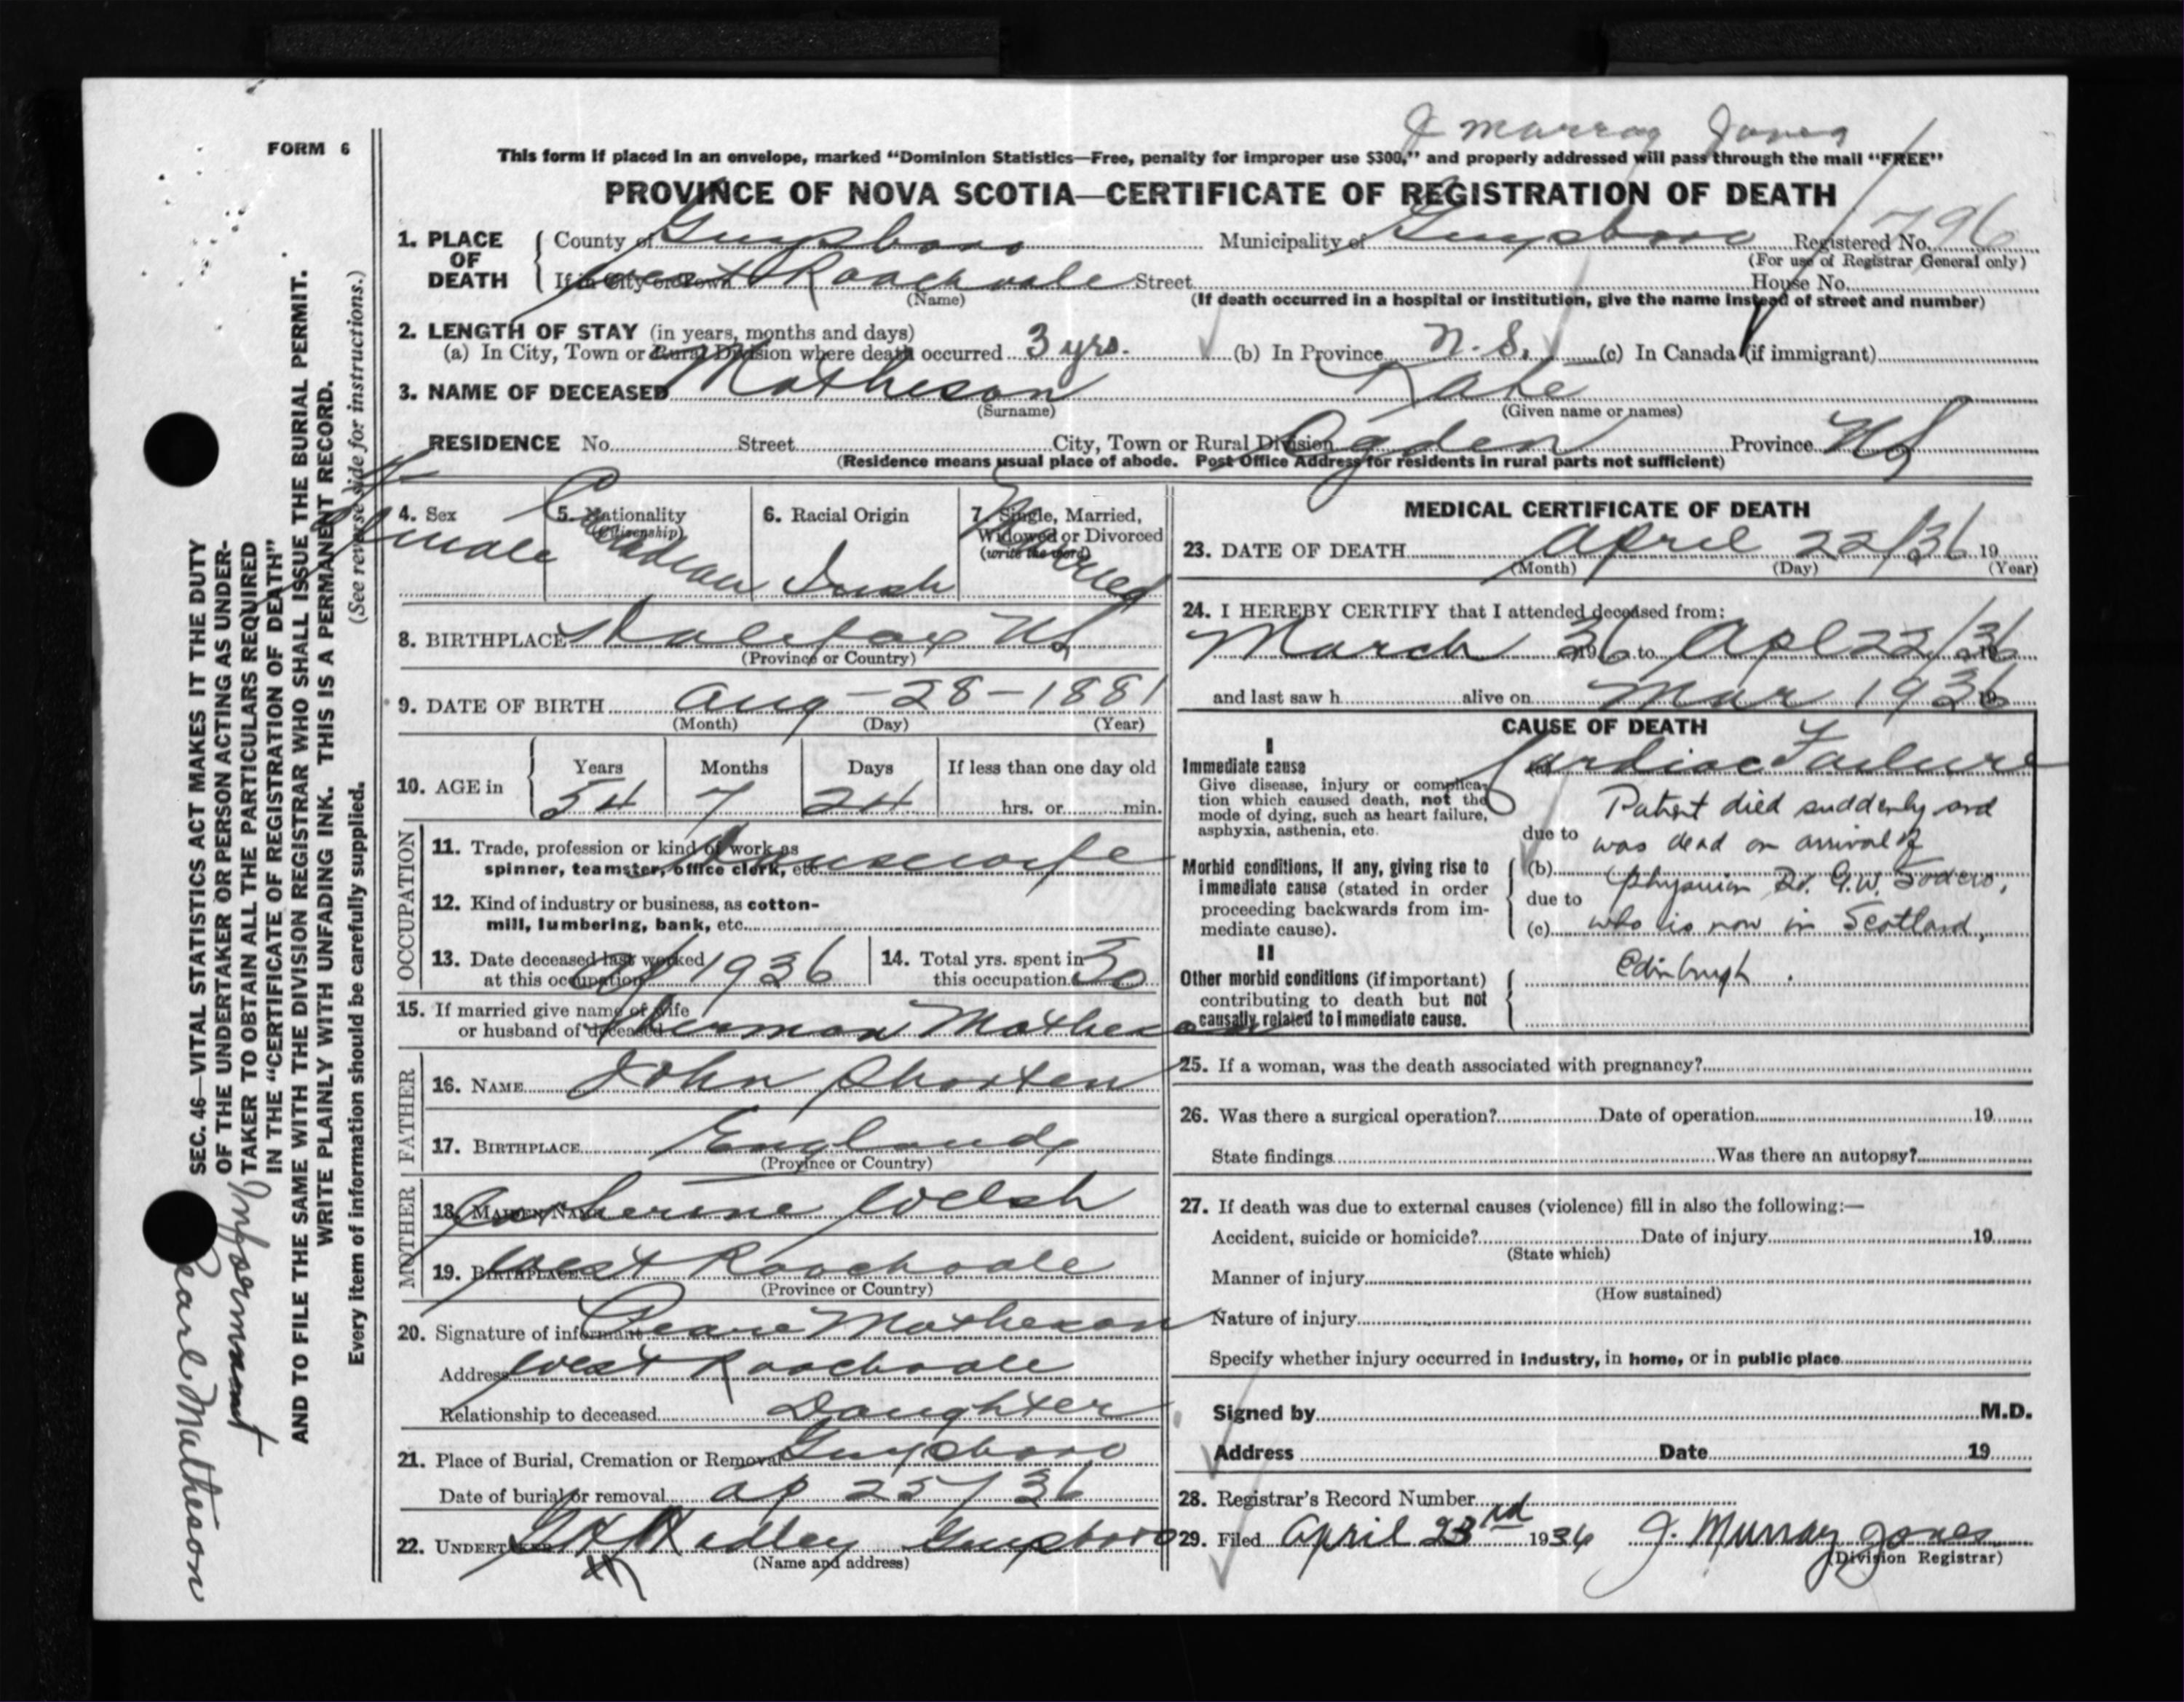 J Murray Jones
FORM 6
This form if placed in an envelope, marked “Dominion Statistics—Free, penalty for improper use $300,” and properly addressed will pass through the mail “FREE”
PROVINCE OF NOVA SCOTIA—CERTIFICATE OF REGISTRATION OF DEATH
1. PLACE OF DEATH County of Guysboro Municipality of Guysboro Registered No. 796
(For use of Registrar General only)
If in City or Town West Roachvale Street House No.
(Name) (If death occurred in a hospital or institution, give the name instead of street and number)
2. LENGTH OF STAY (in years, months and days)
(a) In City, Town or Rural Division where death occurred 3 yrs. (b) In Province N.S. (c) In Canada (if immigrant)
3. NAME OF DECEASED Matheson Kate
(Surname) (Given name or names)
RESIDENCE No. Street City, Town or Rural Division Ogden Province NS
(Residence means usual place of abode. Post Office Address for residents in rural parts not sufficient)
4. Sex Female
5. Nationality (Citizenship) Canadian
6. Racial Origin Irish
7. Single, Married, Widowed or Divorced (write the word) Married
8. BIRTHPLACE Halifax NS
(Province or Country)
9. DATE OF BIRTH Aug - 28 - 1881
(Month) (Day) (Year)
10. AGE in Years Months Days If less than one day old
54 7 24 hrs. or min.
OCCUPATION
11. Trade, profession or kind of work as
spinner, teamster, office clerk, etc. Housewife
12. Kind of industry or business, as cotton-
mill, lumbering, bank, etc.
13. Date deceased last worked at this occupation Ap 1936
14. Total yrs. spent in this occupation 30
15. If married give name of wife
or husband of deceased Herman Matheson
FATHER
16. NAME John Shorten
17. BIRTHPLACE England
(Province or Country)
MOTHER
18. MAIDEN NAME Catherine Welsh
19. BIRTHPLACE West Roachvale
(Province or Country)
20. Signature of informant Pearl Matheson
Address West Roachvale
Relationship to deceased Daughter
21. Place of Burial, Cremation or Removal Guysboro
Date of burial or removal Ap 25/36
22. UNDERTAKER Hadley Guysboro
(Name and address)
MEDICAL CERTIFICATE OF DEATH
23. DATE OF DEATH April 22/36 19
(Month) (Day) (Year)
24. I HEREBY CERTIFY that I attended deceased from:
March 36 19 to Apl 22/36 19
and last saw h alive on Mar 1936 19
CAUSE OF DEATH
I
Immediate cause Cardiac Failure
Give disease, injury or complica-
tion which caused death, not the
mode of dying, such as heart failure,
asphyxia, asthenia, etc.
Patient died suddenly and
due to was dead on arrival of
Morbid conditions, if any, giving rise to
immediate cause (stated in order
proceeding backwards from im-
mediate cause).
(b) physician Dr. G.W. Sodero,
due to
(c) who is now in Scotland,
Edinburgh.
II
Other morbid conditions (if important)
contributing to death but not
causally related to immediate cause.
25. If a woman, was the death associated with pregnancy?
26. Was there a surgical operation? Date of operation 19
State findings Was there an autopsy?
27. If death was due to external causes (violence) fill in also the following:—
Accident, suicide or homicide? Date of injury 19
(State which)
Manner of injury
(How sustained)
Nature of injury
Specify whether injury occurred in industry, in home, or in public place
Signed by M.D.
Address Date 19
28. Registrar's Record Number
29. Filed April 23rd 1936 J. Murray Jones
(Division Registrar)
SEC. 46—VITAL STATISTICS ACT MAKES IT THE DUTY
OF THE UNDERTAKER OR PERSON ACTING AS UNDER-
TAKER TO OBTAIN ALL THE PARTICULARS REQUIRED
IN THE “CERTIFICATE OF REGISTRATION OF DEATH”
AND TO FILE THE SAME WITH THE DIVISION REGISTRAR WHO SHALL ISSUE THE BURIAL PERMIT.
WRITE PLAINLY WITH UNFADING INK. THIS IS A PERMANENT RECORD.
Every item of information should be carefully supplied. (See reverse side for instructions.)
Informant
Pearl Matheson